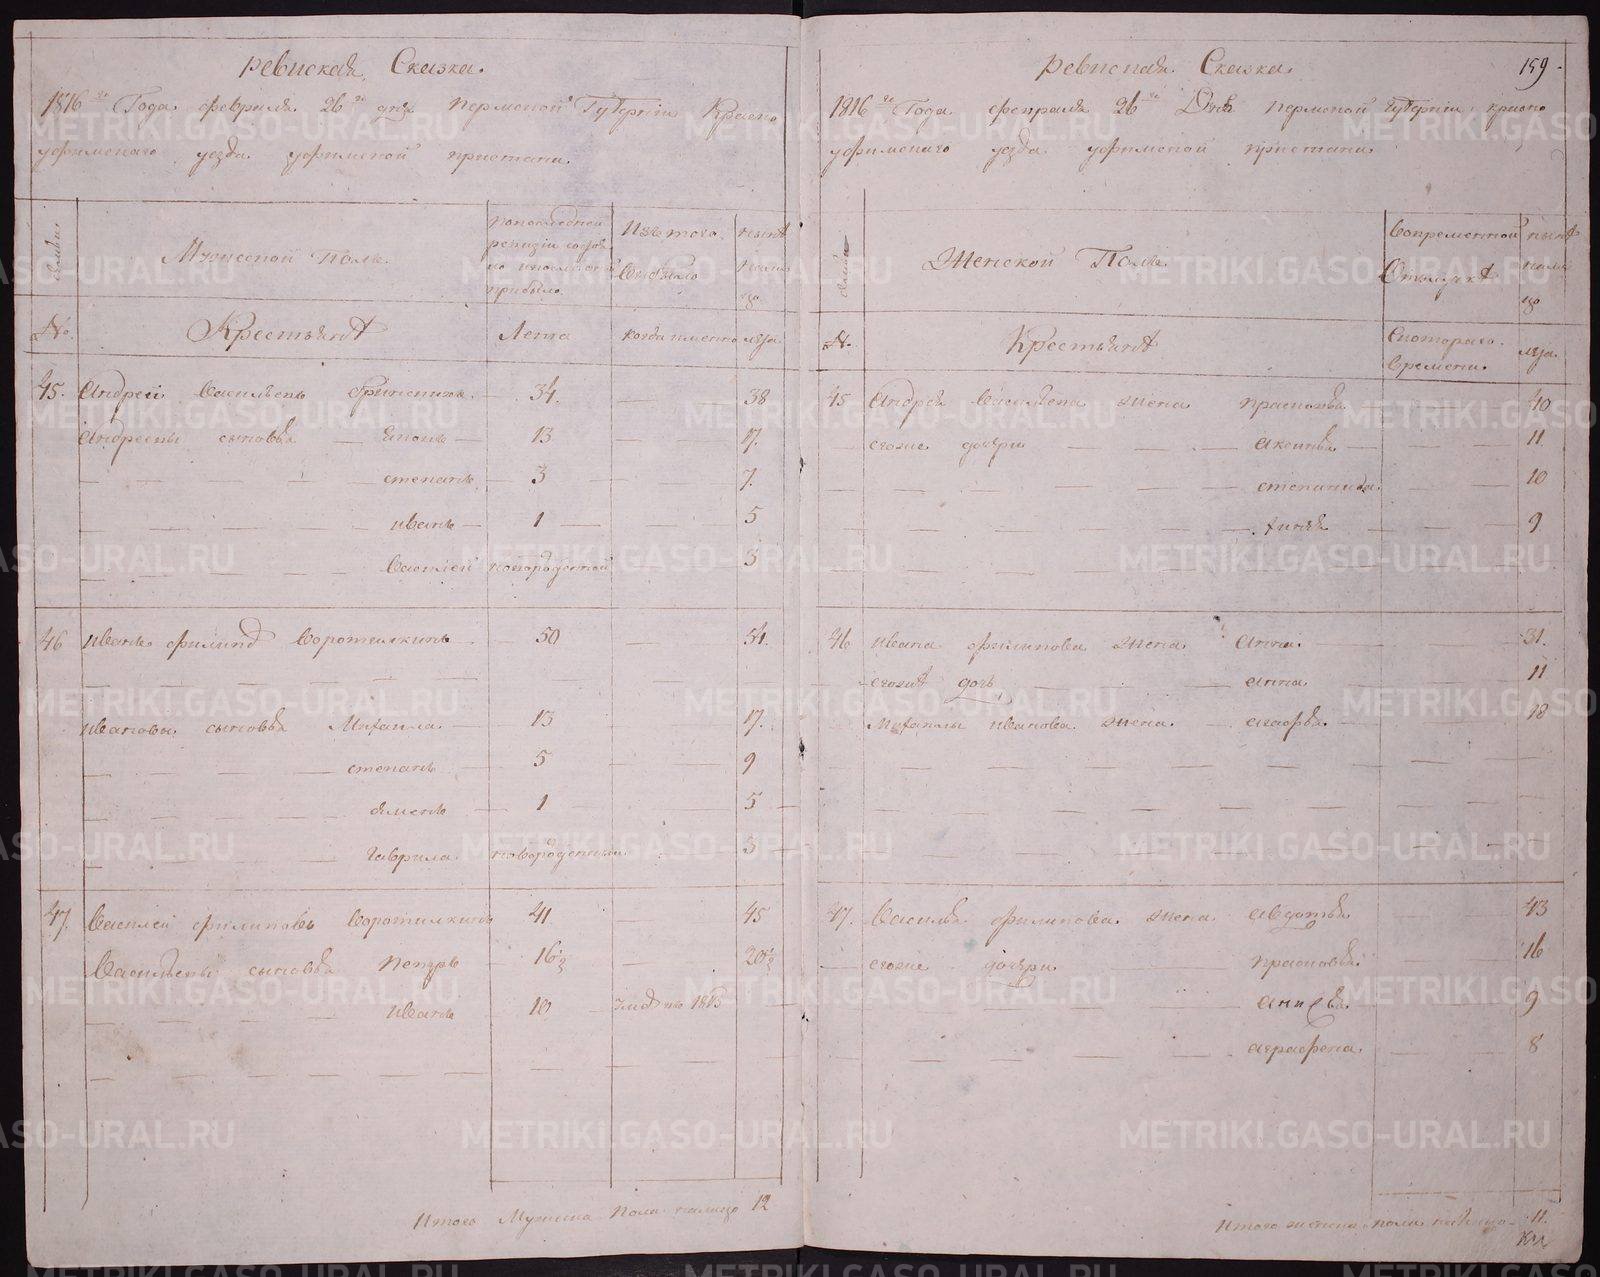 Ревиская Сказка.
1816го Года февраля 26го дня Пермской Губернии Красно
уфимскаго уезда уфимской пристани
семьи
Мужеской Полъ
Изъ того
Выбыло
ныне
на ли
цо
№
Крестьяне
Лета
когда имянно
лета
45. Андрей Васильевъ 34. 38
Андреевы сыновья 13 17.
степанъ 3 7.
иванъ 1 5
Василей новорожденной 3
46 иванъ филипов Воротилкинъ 50 54.
ивановы сыновья Михаила 13 17.
степанъ 5 9
1 5
гаврила новорожденный 3
47. Василей филиповъ Воротилкинъ 41. 45
Васильевы сыновья Петръ 16½ 20½
иванъ 10 1815
Итого Мужеска Пола налицо 12
Ревиская Сказка. 159.
1816го Года февраля 26го Дня Пермской Губернии красно
уфимскаго уезда уфимской пристани
Женской Полъ
Вовременной
Отлучке
ныне
на ли
цо
№.
Крестьяне
Скотораго
Времени.
лета
45 Андрея Васильева жена прасковья 40
егоже дочери аксинья 11.
степанида. 10
9
46 ивана филипова жена анна. 31.
егоже дочь анна 11
Михаилы иванова жена агафья. 18
47. Василья филипова жена авдотья 43
егоже дочери прасковья 16
9
аграфена. 8
Итого женска пола налицо 11.
METRIKI.GASO-URAL.RU